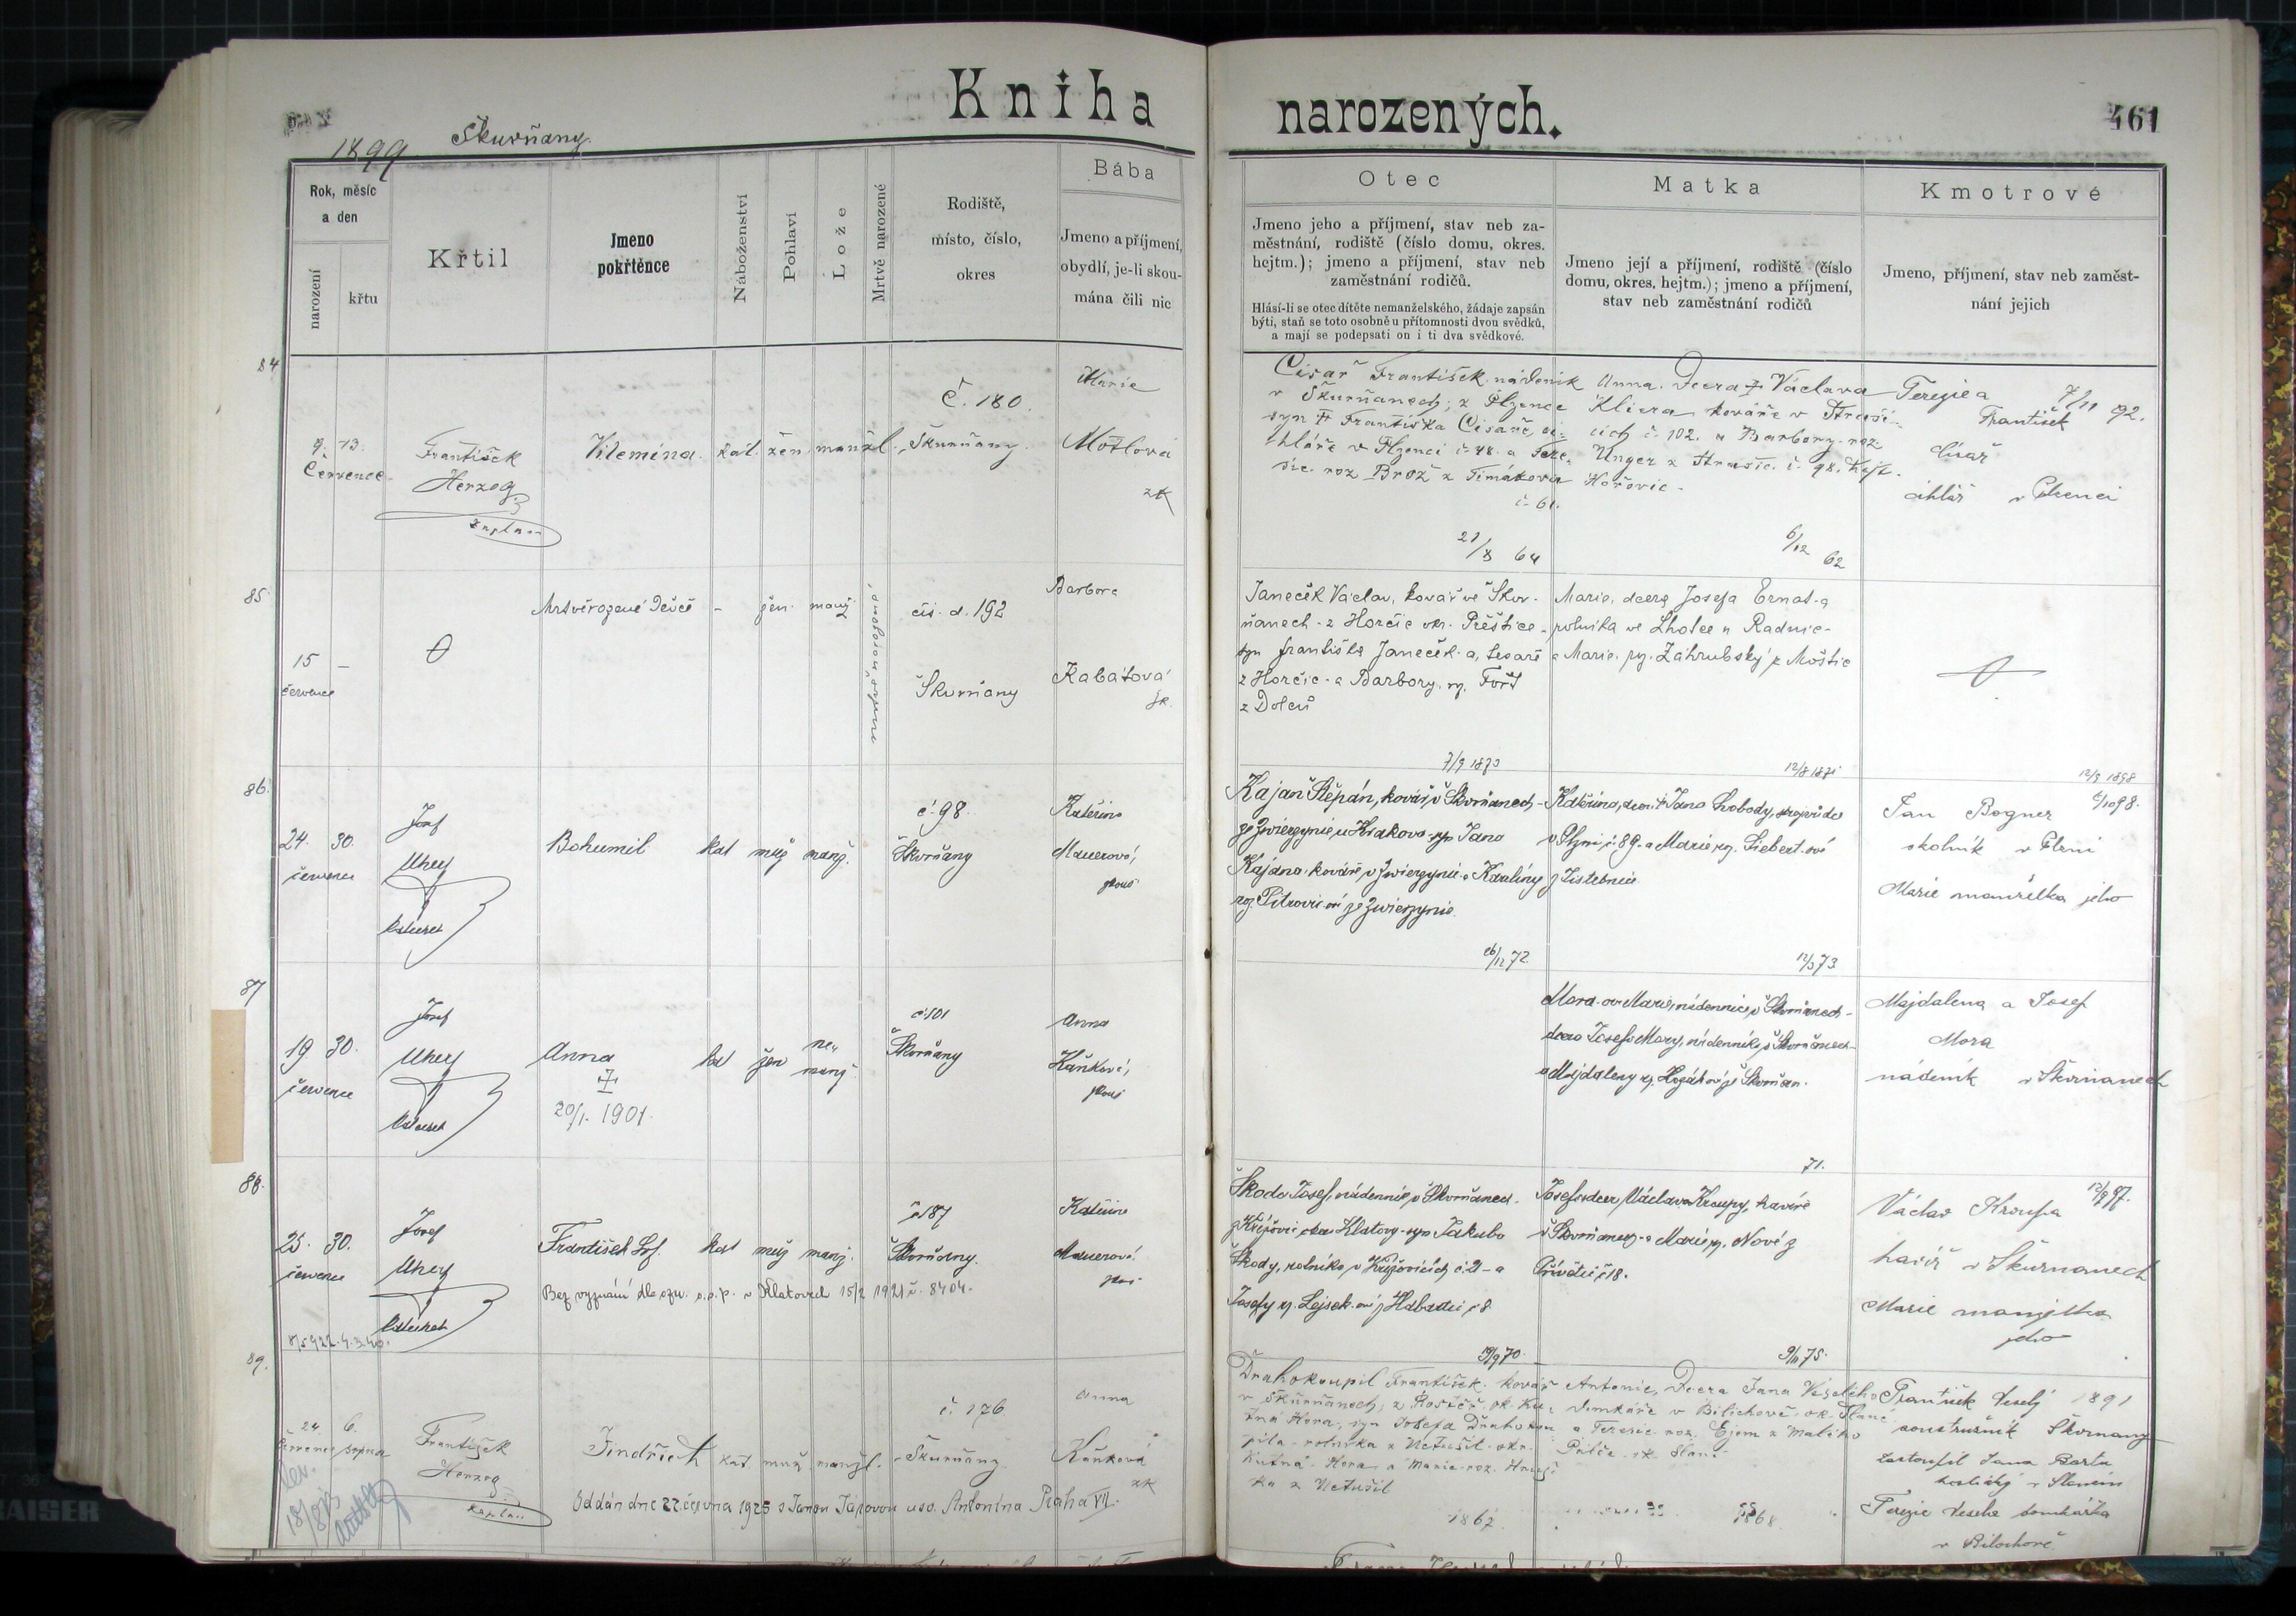 Kniha narozených.
461
1899 Škurňany.
Rok, měsíc
a den
narození
křtu
Křtil
Jmeno
pokřtěnce
Náboženství
Pohlaví
Lože
Mrtvě narozené
Rodiště,
místo, číslo,
okres
Bába
Jmeno a příjmení,
obydlí, je-li skou-
mána čili nic
Otec
Jmeno jeho a příjmení, stav neb za-
městnání, rodiště (číslo domu, okres.
hejtm.); jmeno a příjmení, stav neb
zaměstnání rodičů.
Hlásí-li se otec dítěte nemanželského, žádaje zapsán
býti, staň se toto osobně u přítomnosti dvou svědků,
a mají se podepsati on i ti dva svědkové.
Matka
Jmeno její a příjmení, rodiště (číslo
domu, okres. hejtm.); jmeno a příjmení,
stav neb zaměstnání rodičů
Kmotrové
Jmeno, příjmení, stav neb zaměst-
nání jejich
84
9. 13.
Července
František
Herzog
kaplan
Vilemína
kat. žen. manžel.
Č. 180.
Škurňany
Marie
Motlová
zk
Císař František nádeník
v Škurňanech; z Plzence
syn † Františka Císaře, ci-
hláře v Plzenci č. 48. a Tere-
sie roz. Brož z Tímákova
č. 61.
21/8 64
Anna. Dcera † Václava
Kliera kováře v Straši-
cích č. 102. a Barbory roz.
Unger z Strašic. č. 98. hejt.
Hořovic.
6/12 62
Terezie a 7/11 92.
František
Císař
cihlář v Plzenci
85
15 -
července
Mrtvěrozené Děvče - žen. manž.
čís. d. 192
Škurňany
Barbora
Kabátová
zk.
Janeček Václav, kovář ve Skvr-
ňanech - z Horčic okr. Přeštice -
syn Františka Janeček-a, tesaře
z Horčic - a Barbory, rz. Fořt
z Dolců
7/9 1873
Marie, dcera Josefa Ernst-a
rolníka ve Lhotce u Radnic -
a Marie, rz. Záhrubský z Moštic
12/8 1871
86.
24. 30.
července
Josef
Uhey
Bohumil
kat muž manž.
č. 98.
Škvrňany
Kateřina
Mauerová,
zkouš
Kajan Štěpán, kovář, v Škvrňanech -
ze Zwierzynie u Krakova - syn Jana
Kajána, kováře, v Zwierzynie a Karolíny
rz. Pitrovic-ové ze Zwierzynie.
26/12 72.
Kateřina, dcera † Jana Svobody, strojvůdce
v Plzni, č. 89. a Marie, rz. Siebert-ové
z Jistebnice.
12/3 73
12/9 1898
6/10 98.
Jan Bogner
školník v Plzni
Marie manželka jeho
87
19 30.
července
Josef
Uhey
Anna
†
20/1. 1901.
kat žen ne-
manž
č. 101
Škvrňany
Anna
Kaňková,
zkouš
Mora-ová Marie, nádennice, v Škvrňanech -
dcera Josefa Mory, nádenníka, v Škvrňanech -
a Majdaleny rz.
71.
Majdalena a Josef
Mora
nádeník v Škvrňanech
88.
25. 30.
července
Josef
Uhey
František Jos.
kat muž manž.
Bez vyznání dle ozn. o.s.p. v Klatovech 15/2 1921 č. 8404.
č. 187
Škvrňany.
Kateřina
Mauerová
Škoda Josef, nádenník, v Škvrňanech.
okr. Klatovy - syn Jakuba
Škody, rolníka, v
19/9 70.
Josefa, dcera Václava Kroupy, havíře
v Škvrňanech - a Marie, rz. Nové z
9/11 75.
12/9 97.
Václav Kroupa
havíř v Škurnanech
Marie manželka
jeho
89.
24. 6.
Července srpna
František
Herzog
kaplan
Jindřich
kat. muž. manžel.
Oddán dne 22. června 1925 s Janou u sv. Antonína Praha VII.
č. 176
Škurňany
Anna
Kaňková
zk
Drahokoupil František. kovář
v Škurňanech;
Hora, syn Josefa Drahokou-
pila - rolníka z Netušil - okr.
Kutná - Hora a Marie roz.
z Netušil
1867.
Antonie, Dcera Jana Veselého
domkáře v Bilichově. ok. Slaný
a Terezie roz. Ejem z Malého
ok. Slaný
1868
František Veselý 1891
soustružník Škvrnany
zastoupil Jana Barta
Terezie Veselá domkářka
v Bilichově